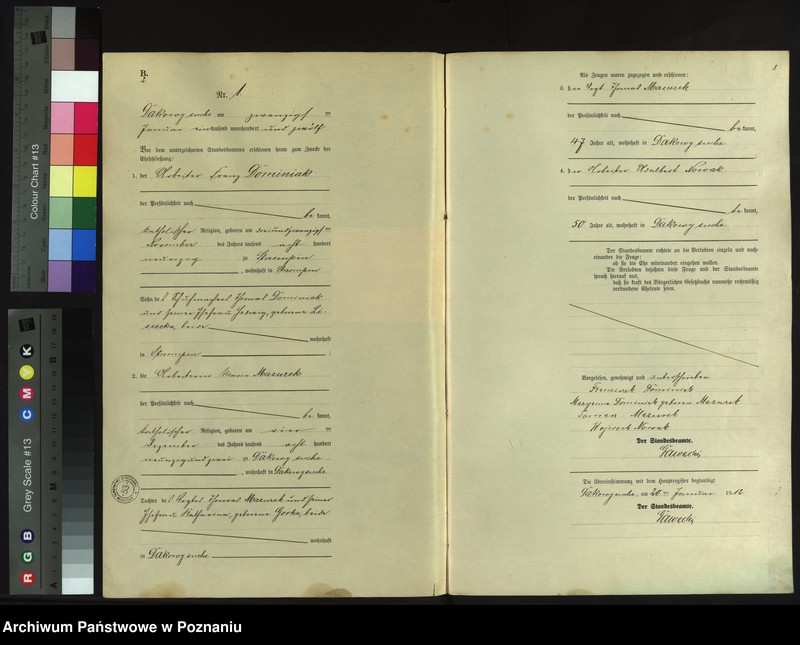 B.
Nr. 1.
Dakowy suche am zwanzigsten
Januar tausend neunhundert und zwölf
Vor dem unterzeichneten Standesbeamten erschienen heute zum Zwecke der
Eheschließung:
1. der Arbeiter Franz Dominiak
der Persönlichkeit nach
be kannt,
katholischer Religion, geboren am dreiundzwanzigsten
November des Jahres tausend acht hundert
neunzig zu
, wohnhaft in
Sohn des Schuhmachers Thomas Dominiak
und seiner Ehefrau Hedwig, geborene
beide
wohnhaft
in
2. die Arbeiterin Maria Mazurek
der Persönlichkeit nach
be kannt,
katholischer Religion, geboren am vier ten
Dezember des Jahres tausend acht hundert
neunzigundzwei zu Dakowy suche
, wohnhaft in Dakowy suche
Tochter des Vogtes Thomas Mazurek und seiner
Ehefrau Katharina, geborene Gorka, beide
wohnhaft
in Dakowy suche
3.
Als Zeugen waren zugezogen und erschienen:
3. der Vogt Thomas Mazurek
der Persönlichkeit nach
be kannt,
47 Jahre alt, wohnhaft in Dakowy suche
4. der Arbeiter Adalbert Nowak
der Persönlichkeit nach
be kannt,
50 Jahre alt, wohnhaft in Dakowy suche.
Der Standesbeamte richtete an die Verlobten einzeln und nach-
einander die Frage:
ob sie die Ehe miteinander eingehen wollen.
Die Verlobten bejahten diese Frage und der Standesbeamte
sprach hierauf aus,
daß sie kraft des Bürgerlichen Gesetzbuchs nunmehr rechtmäßig
verbundene Eheleute seien.
Vorgelesen, genehmigt und unterschrieben
Franciszek Dominiak
Maryanna Dominiak geborene Mazurek
Tomasz Mazurek
Wojciech Nowak
Der Standesbeamte.
Die Übereinstimmung mit dem Hauptregister beglaubigt
Dakowy suche, am 20ten Januar 1912
Der Standesbeamte.
Colour Chart #13
Grey Scale #13
R G B C Y M K
A
M
B
Archiwum Państwowe w Poznaniu